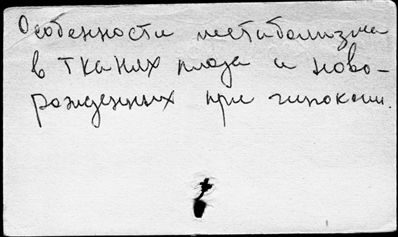 Особенности метаболизма
в тканях плода и ново-
рожденных при гипоксии.